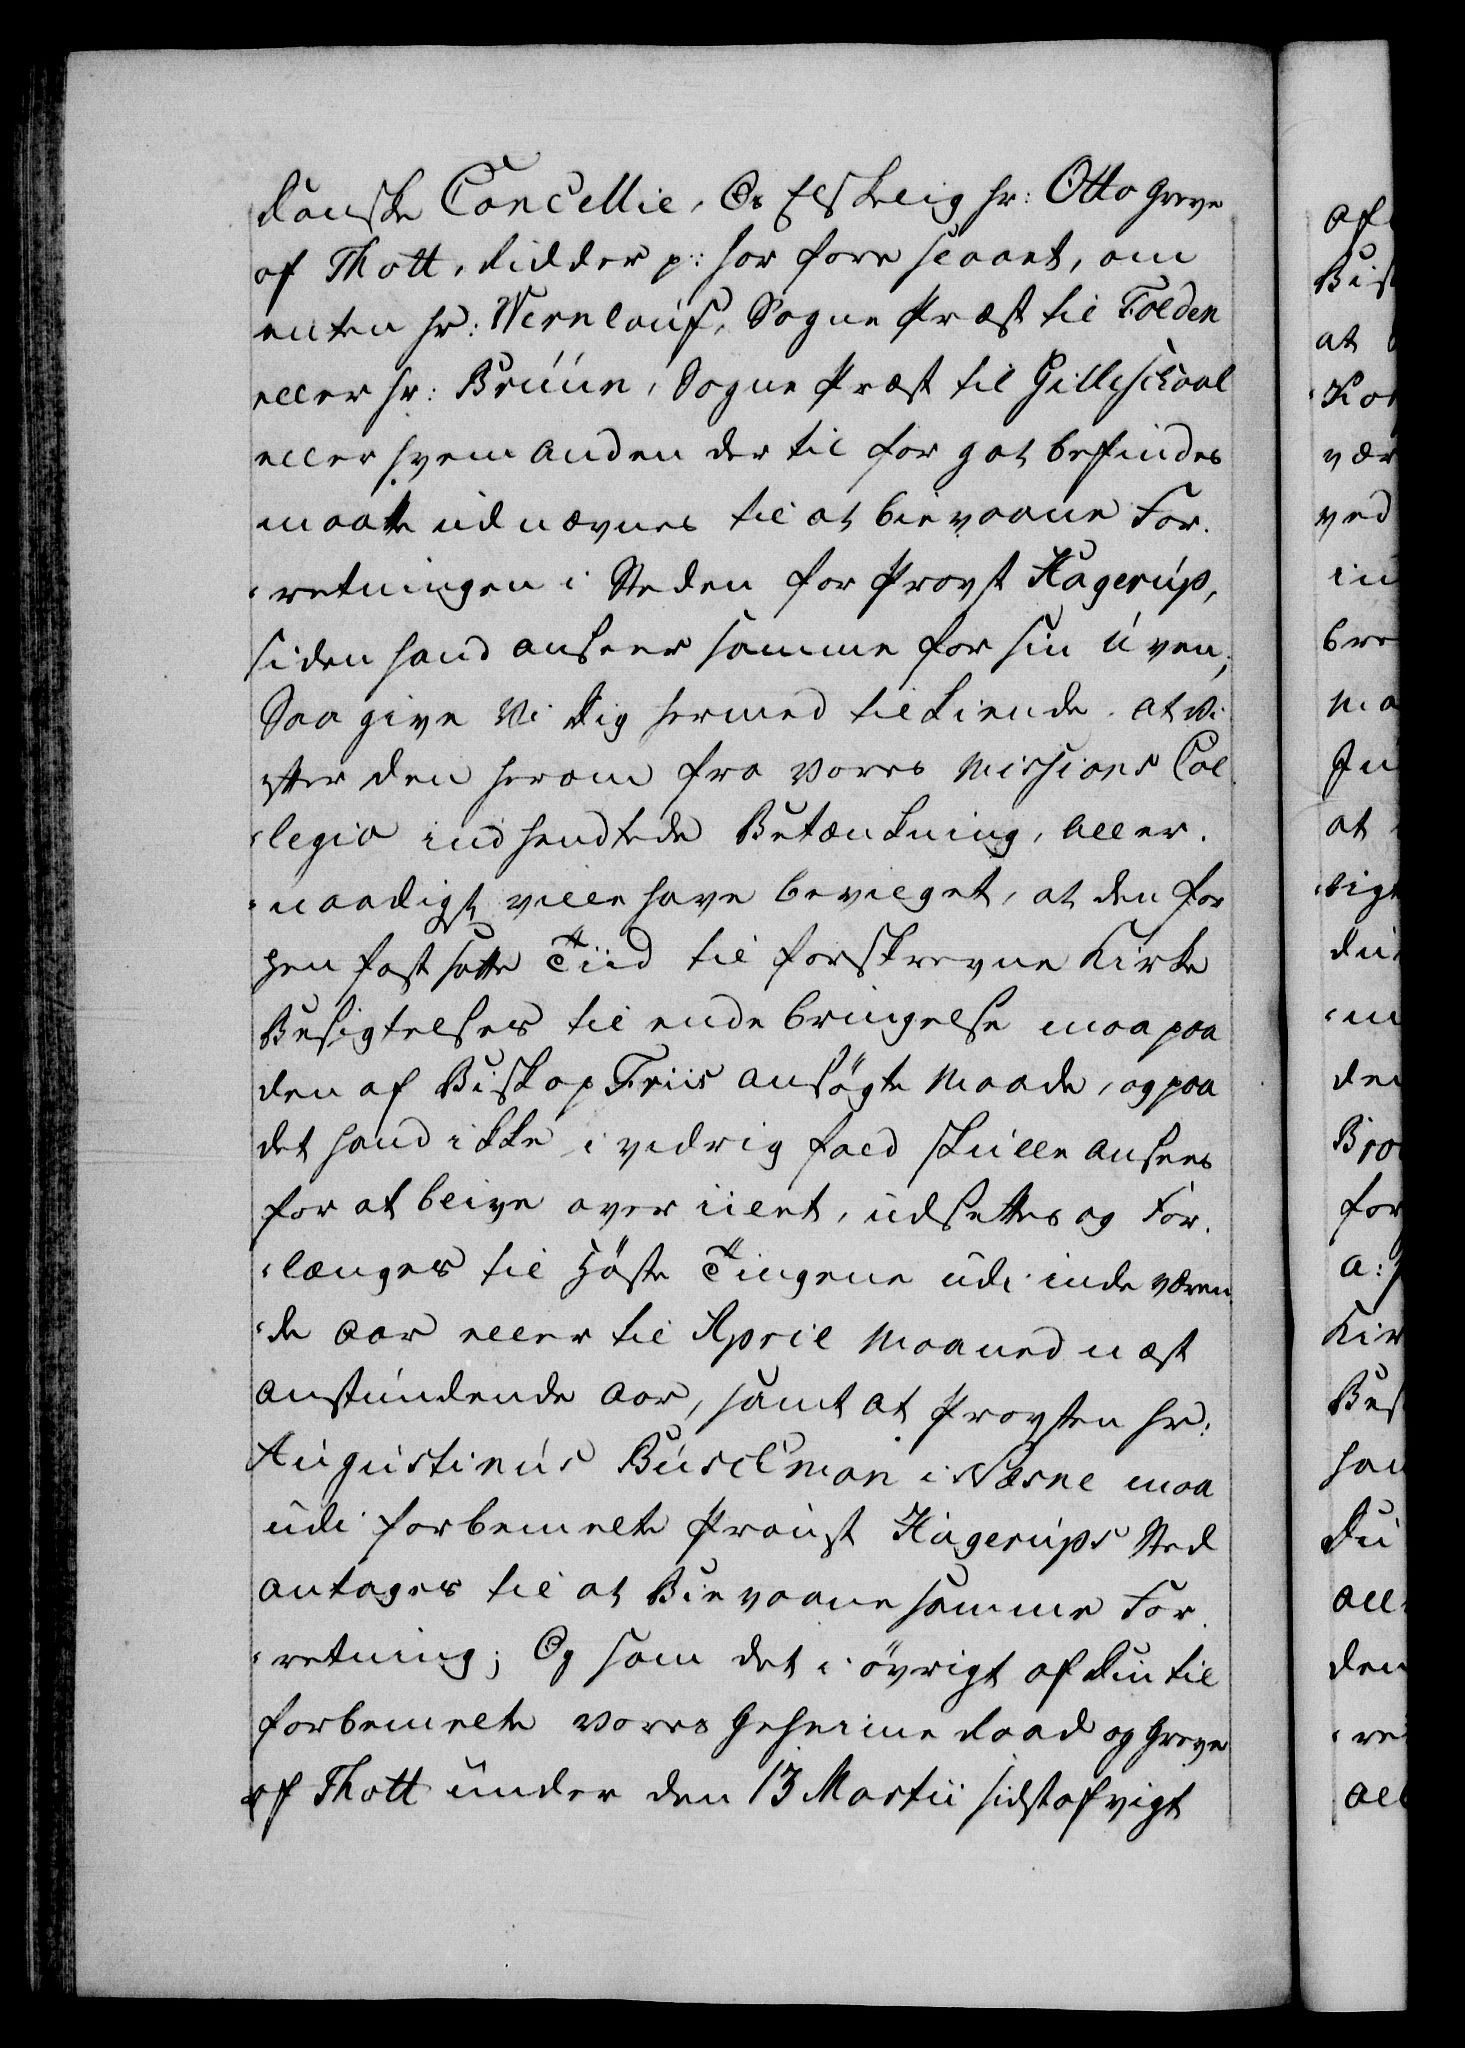 danske Cancellie, Os Elskelig Hr: Otto Greve
af Thott, Ridder p: har forestillet, om
enten Hr: Wernlouf, Sogne Præst til Folden
eller Hr: Bruun, Sogne Præst til Gilleschaal
eller hvem anden der til for got befindes
maatte udnævnes til at bievaane For-
-retningen i Steden for Provst Hagerup,
siden hand anseer samme for sin uven;
Saa give Vi dig hermed tilkiende. at Vi
efter den herom fra vores Missions Col
-legio indsendtede Betænkning, aller-
-naadigst ville have bevilget, at den for
hen fastsatte Tiid til forskrevne Kirke
Besigtelses til ende bringelse maa paa
den af Biskop Friis ansögte Maade, og paa
det hand ikke i vedrig fald skulle ansees
for at blive over iilet, udsettes og For-
-længes til Höste Tingene udi inde væren
-de Aar eller til April Maaned næst
anstundende Aar, samt at Provsten Hr:
Augustinus Buschman i Næsne maa
udi forbemelte Proust Hagerups Sted
antages til at Bievaane samme For-
-retning; Og som det i övrigt af Din til
forbemelte vores Geheime Raad og Greve
af Thott under den 13 Martii sidstafvigt
af
Bis
at
Kor
vær
ved
in
bre
Ma
In
at
-sigt
du
-m
den
Bro
for
a:
Kir
Bes
han
Du
all
den
-re
all